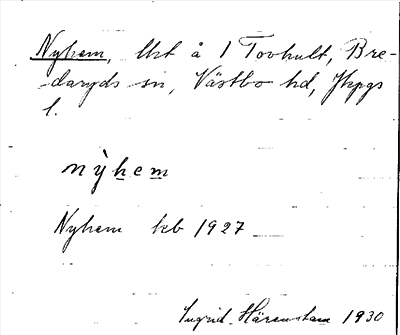 Nyhem, lht å 1 Tovhult, Bre-
daryds sn, Västbo hd, Jkpgs
l.
nỳhem
Nyhem kb 1927
Ingrid Härenstam 1930